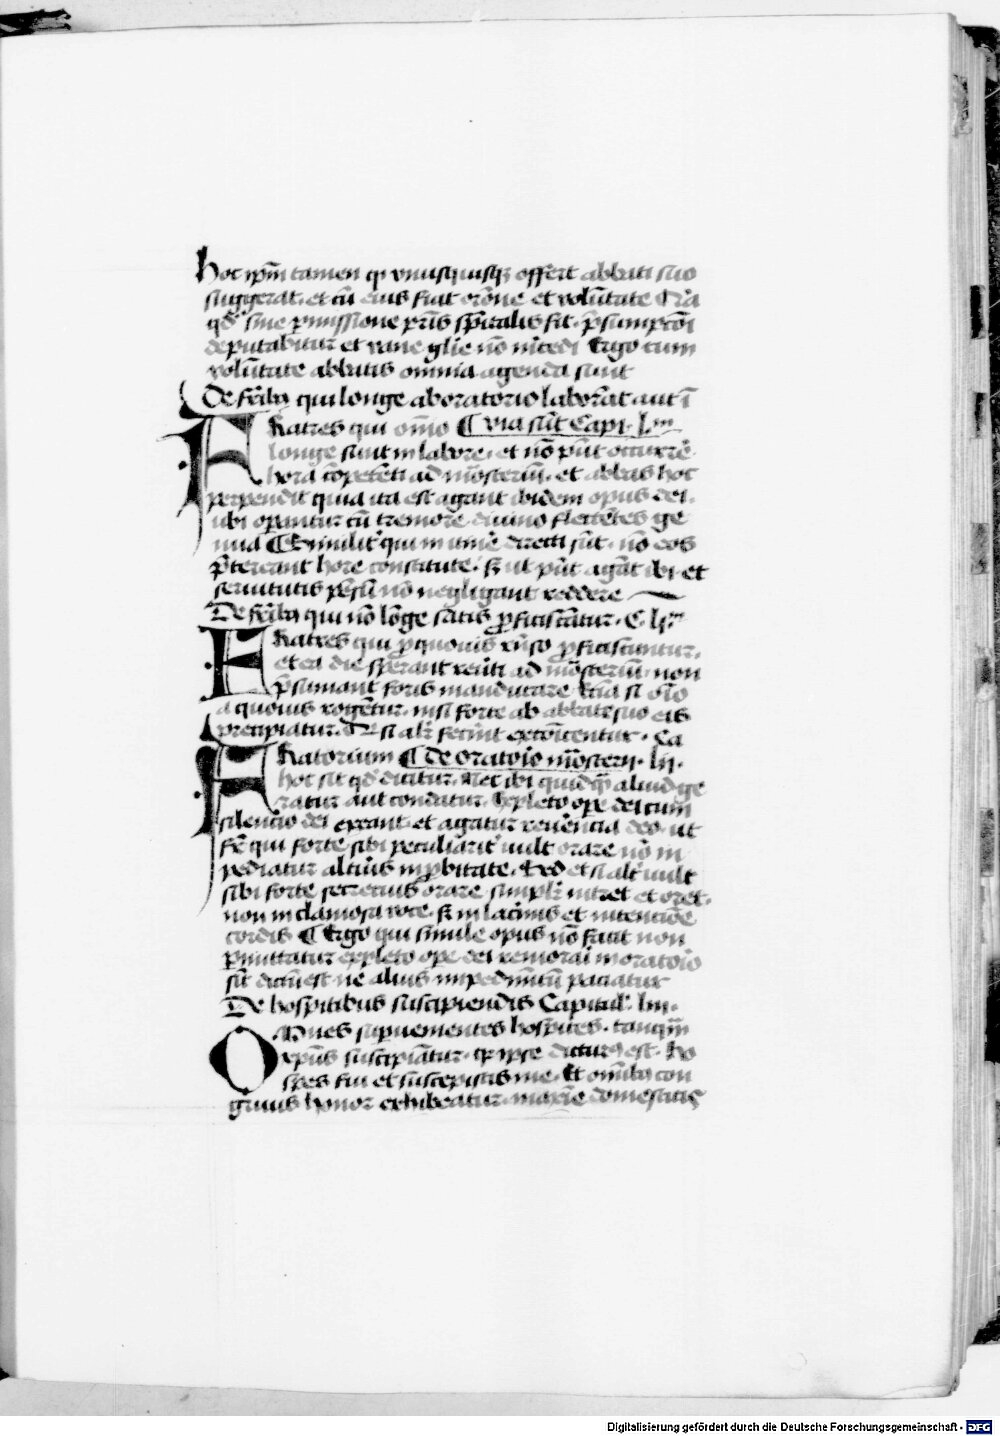 hoc ip̄m tamen qͥ vnusquisqꝫ offert abbati suo
suggerat. et cū eius fiat or̄one et volūtate Q̄ia
qd̓ sine ꝑmissione pr̄is sp̄iritalis fit. p̄sumpcōi
deputabitur et vane glīe nō m̄cedi Ergo cum
volūtate abbatis omnia agenda sunt
De fr̄ibꝫ qui longe aboratorio laborāt aut ī
FRatres qui om̄io ¶ via sūt Capi. L.
longe sunt in labore. et nō pn̄t occurrē
hora cōpetēti ad m̄osteriū. et abbas hoc
perpendit quia ita est agant ibidem opus dei.
ubi oꝑantur cū tremore diuino flectētes ge
nua ¶ Similit̓ qui in itinē directi sūt. nō eos
p̄tereant hore constitute. sꝫ ut pn̄t agāt ibi et
seruitutis pēsū nō negligant reddere
De fr̄ibꝫ qui nō lōge satis ꝓficiscūtur. C. li.
FRatres qui ꝓ quouis rn̄so ꝓficiscuntur.
et ea die sꝑant reūti ad m̄osteriū. non
p̄sumant foris manducare. Etiā si om̄io
a quouis rogētur. nisi forte ab abbate suo eis
precipiatur. Qd̓ si alit̓ fecerint excōicentur. Ca
ORatorium ¶ De oratoio m̄osterij. lij.
hoc sit qd̓ dicitur. Nec ibi quidq̄ aliud ge
ratur aut condatur. Expleto oꝑe dei cum
silencio om̄s exeant. et agatur reuēncia deo. ut
fr̄ qui forte sibi peculiarit̓ uult orare nō in
pediatur altius inꝓbitate. Sed et si alt̓ uult
sibi forte secrecius orare simplr̄ intret et oret.
non in clamosa voce. sꝫ in lac̄mis et intencōe
cordis ¶ Ergo qui simile opus nō facit non
ꝑmittatur expleto oꝑe dei remorai in oratoio
sic̄ dictū est ne alius impedimtū paciatur
De hospitibus suscipiendis Capitul. liij.
OMnes suꝑuenientes hospites. tanqm̄
xp̄us suscipiātur. qͥ ipse dicturꝰ est. Ho
spes fui et suscepistis me. Et om̄ibꝫ con
gruus honor exhibeatur. maxīe domesticis
Digitalisierung gefördert durch die Deutsche Forschungsgemeinschaft - DFG